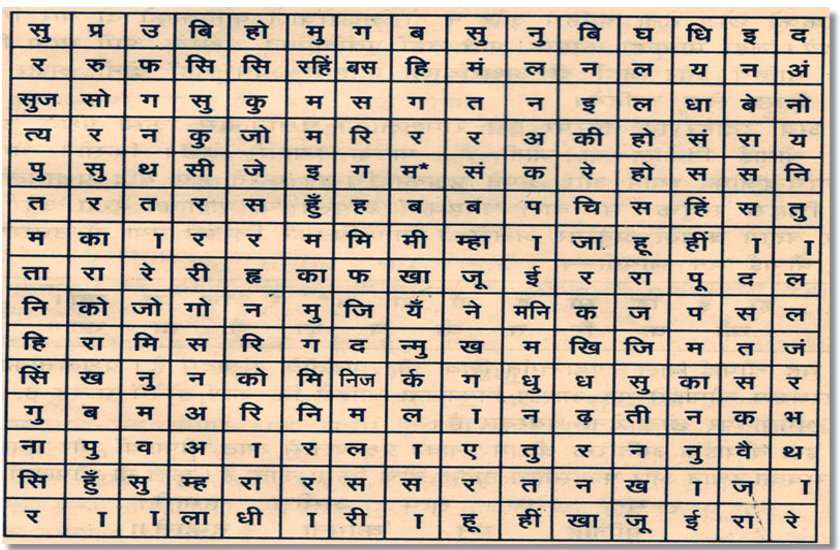 सु प्र उ बि हो मु ग ब सु नु बि घ धि इ द
र रु फ सि सि रहिं बस हि मं ल न ल य न अं
सुज सो ग सु कु म स ग त न इ ल धा बे नो
त्य र न कु जो म रि र र अ की हो सं रा य
पु सु थ सी जे इ ग म* सं क रे हो स स नि
त र त र स हुँ ह ब ब प चि स हिं स तु
म का ा र र म मि मी म्हा ा जा हू हीं ा ा
ता रा रे री हृ का फ खा जू ई र रा पू द ल
नि को जो गो न मु जि यँ ने मनि क ज प स ल
हि रा मि स रि ग द न्मु ख म खि जि म त जं
सिं ख नु न को मि निज र्क ग धु ध सु का स र
गु ब म अ रि नि म ल ा न ढ़ ती न क भ
ना पु व अ ा र ल ा ए तु र न नु वै थ
सि हुँ सु म्ह रा र स स र त न ख ा ज ा
र ा ा ला धी ा री ा हू हीं खा जू ई रा रे